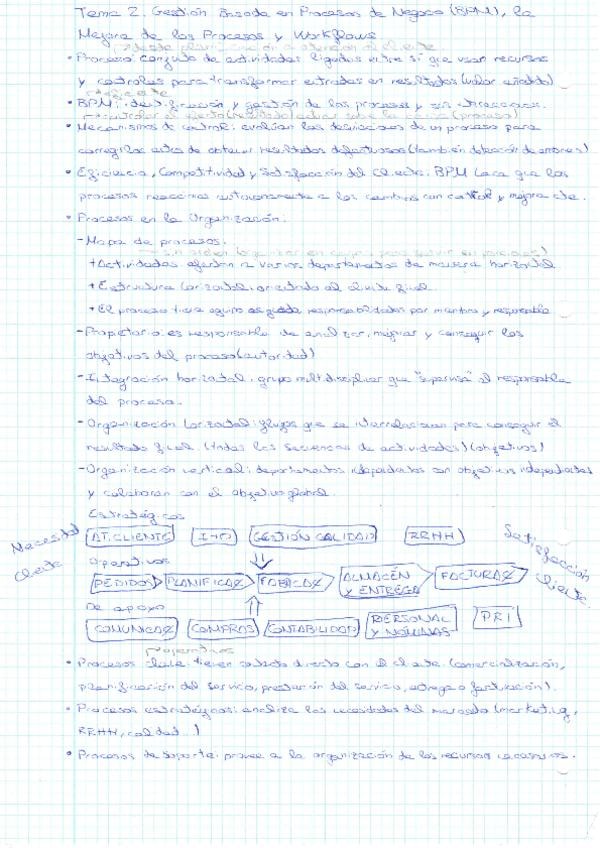 Tema 2. Gestión Basada en Procesos de Negocio (BPM), la
Mejora de los Procesos y Workflows
desde planificación a atención al cliente
• Proceso: conjunto de actividades ligadas entre si que usan recursos
y controles para transformar entradas en resultados (valor añadido)
• BPM: identificación y gestión de los procesos y sus interacciones.
controlar el efecto (resultado) actuar sobre la causa (proceso)
• Mecanismos de control: evalúan las desviaciones de un proceso para
corregirlos antes de obtener resultados defectuosos (también detección de errores)
• Eficiencia, Competitividad y Satisfacción del Cliente. BPM hace que los
procesos reaccionen autonomamente a los cambios con control y mejora cte.
• Procesos en la Organización:
- Mapa de procesos.
+ Actividades afectan a varios departamentos de manera horizontal
+ Estructura horizontal, orientado al cliente final.
+ El proceso tiene equipo responsabilidades por miembro y responsable
- Propietario: es responsable de analizar, mejorar y conseguir los
objetivos del proceso (autoridad)
- Integración horizontal: grupo multidisciplinar que "supervisa" al responsable
del proceso.
- Organización horizontal: flujos que se interrelacionan para conseguir el
resultado final. (todas las secuencias de actividades) (objetivos)
- Organización vertical: departamentos independientes con objetivos independientes
y colaboran con el objetivo global.
Estratégicos
Necesidad Cliente
AT. CLIENTE I+D GESTIÓN CALIDAD RRHH
Satisfacción cliente
Operativos
PEDIDOS PLANIFICA FABRICA ALMACÉN Y ENTREGA FACTURA
De apoyo
COMUNICA COMPRAS CONTABILIDAD PERSONAL Y NÓMINAS PRL
operativos
• Procesos clave: tienen contacto directo con el cliente. (comercialización,
planificación del servicio, prestación del servicio, entrega o facturación).
• Procesos estratégicos: analiza las necesidades del mercado (marketing,
RRHH, calidad...)
• Procesos de soporte: provee a la organización de los recursos necesarios.